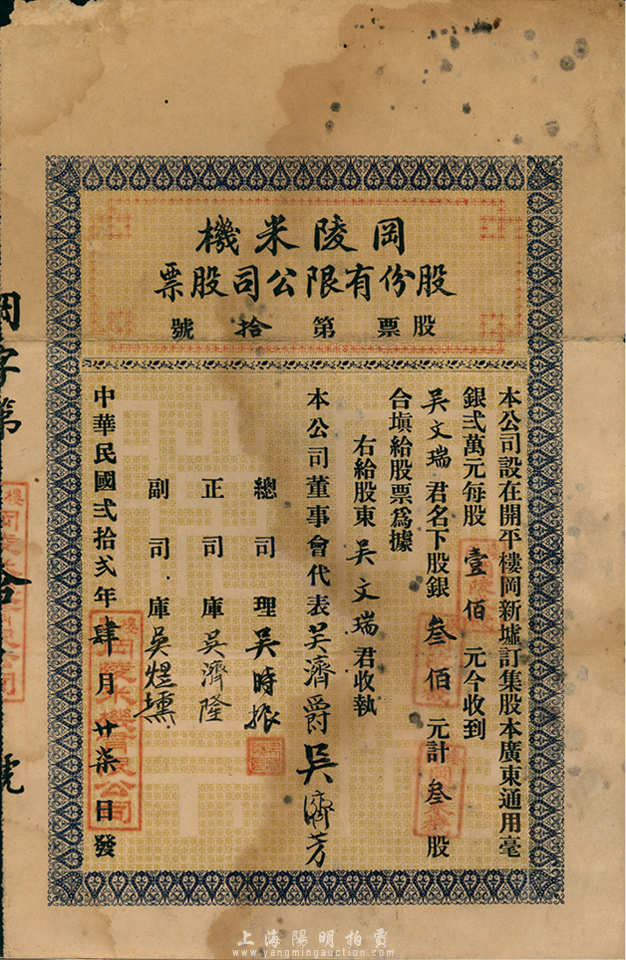 岡陵米機
股份有限公司股票
股票第拾號
本公司設在開平樓岡新墟訂集股本廣東通用毫
銀弍萬元每股壹佰元今收到
吴文瑞君名下股銀叁佰元計叁股
合塡給股票爲據
右給股東吴文瑞君收執
本公司董事會代表吴濟爵吴濟芳
總司理吴時振
正司庫吴濟隆
副司庫吳煜
中華民國弍拾弍年肆月廿柒日發
岡陵米機有限公司
字第拾號
上海陽明拍賣
www.yangmingauction.com